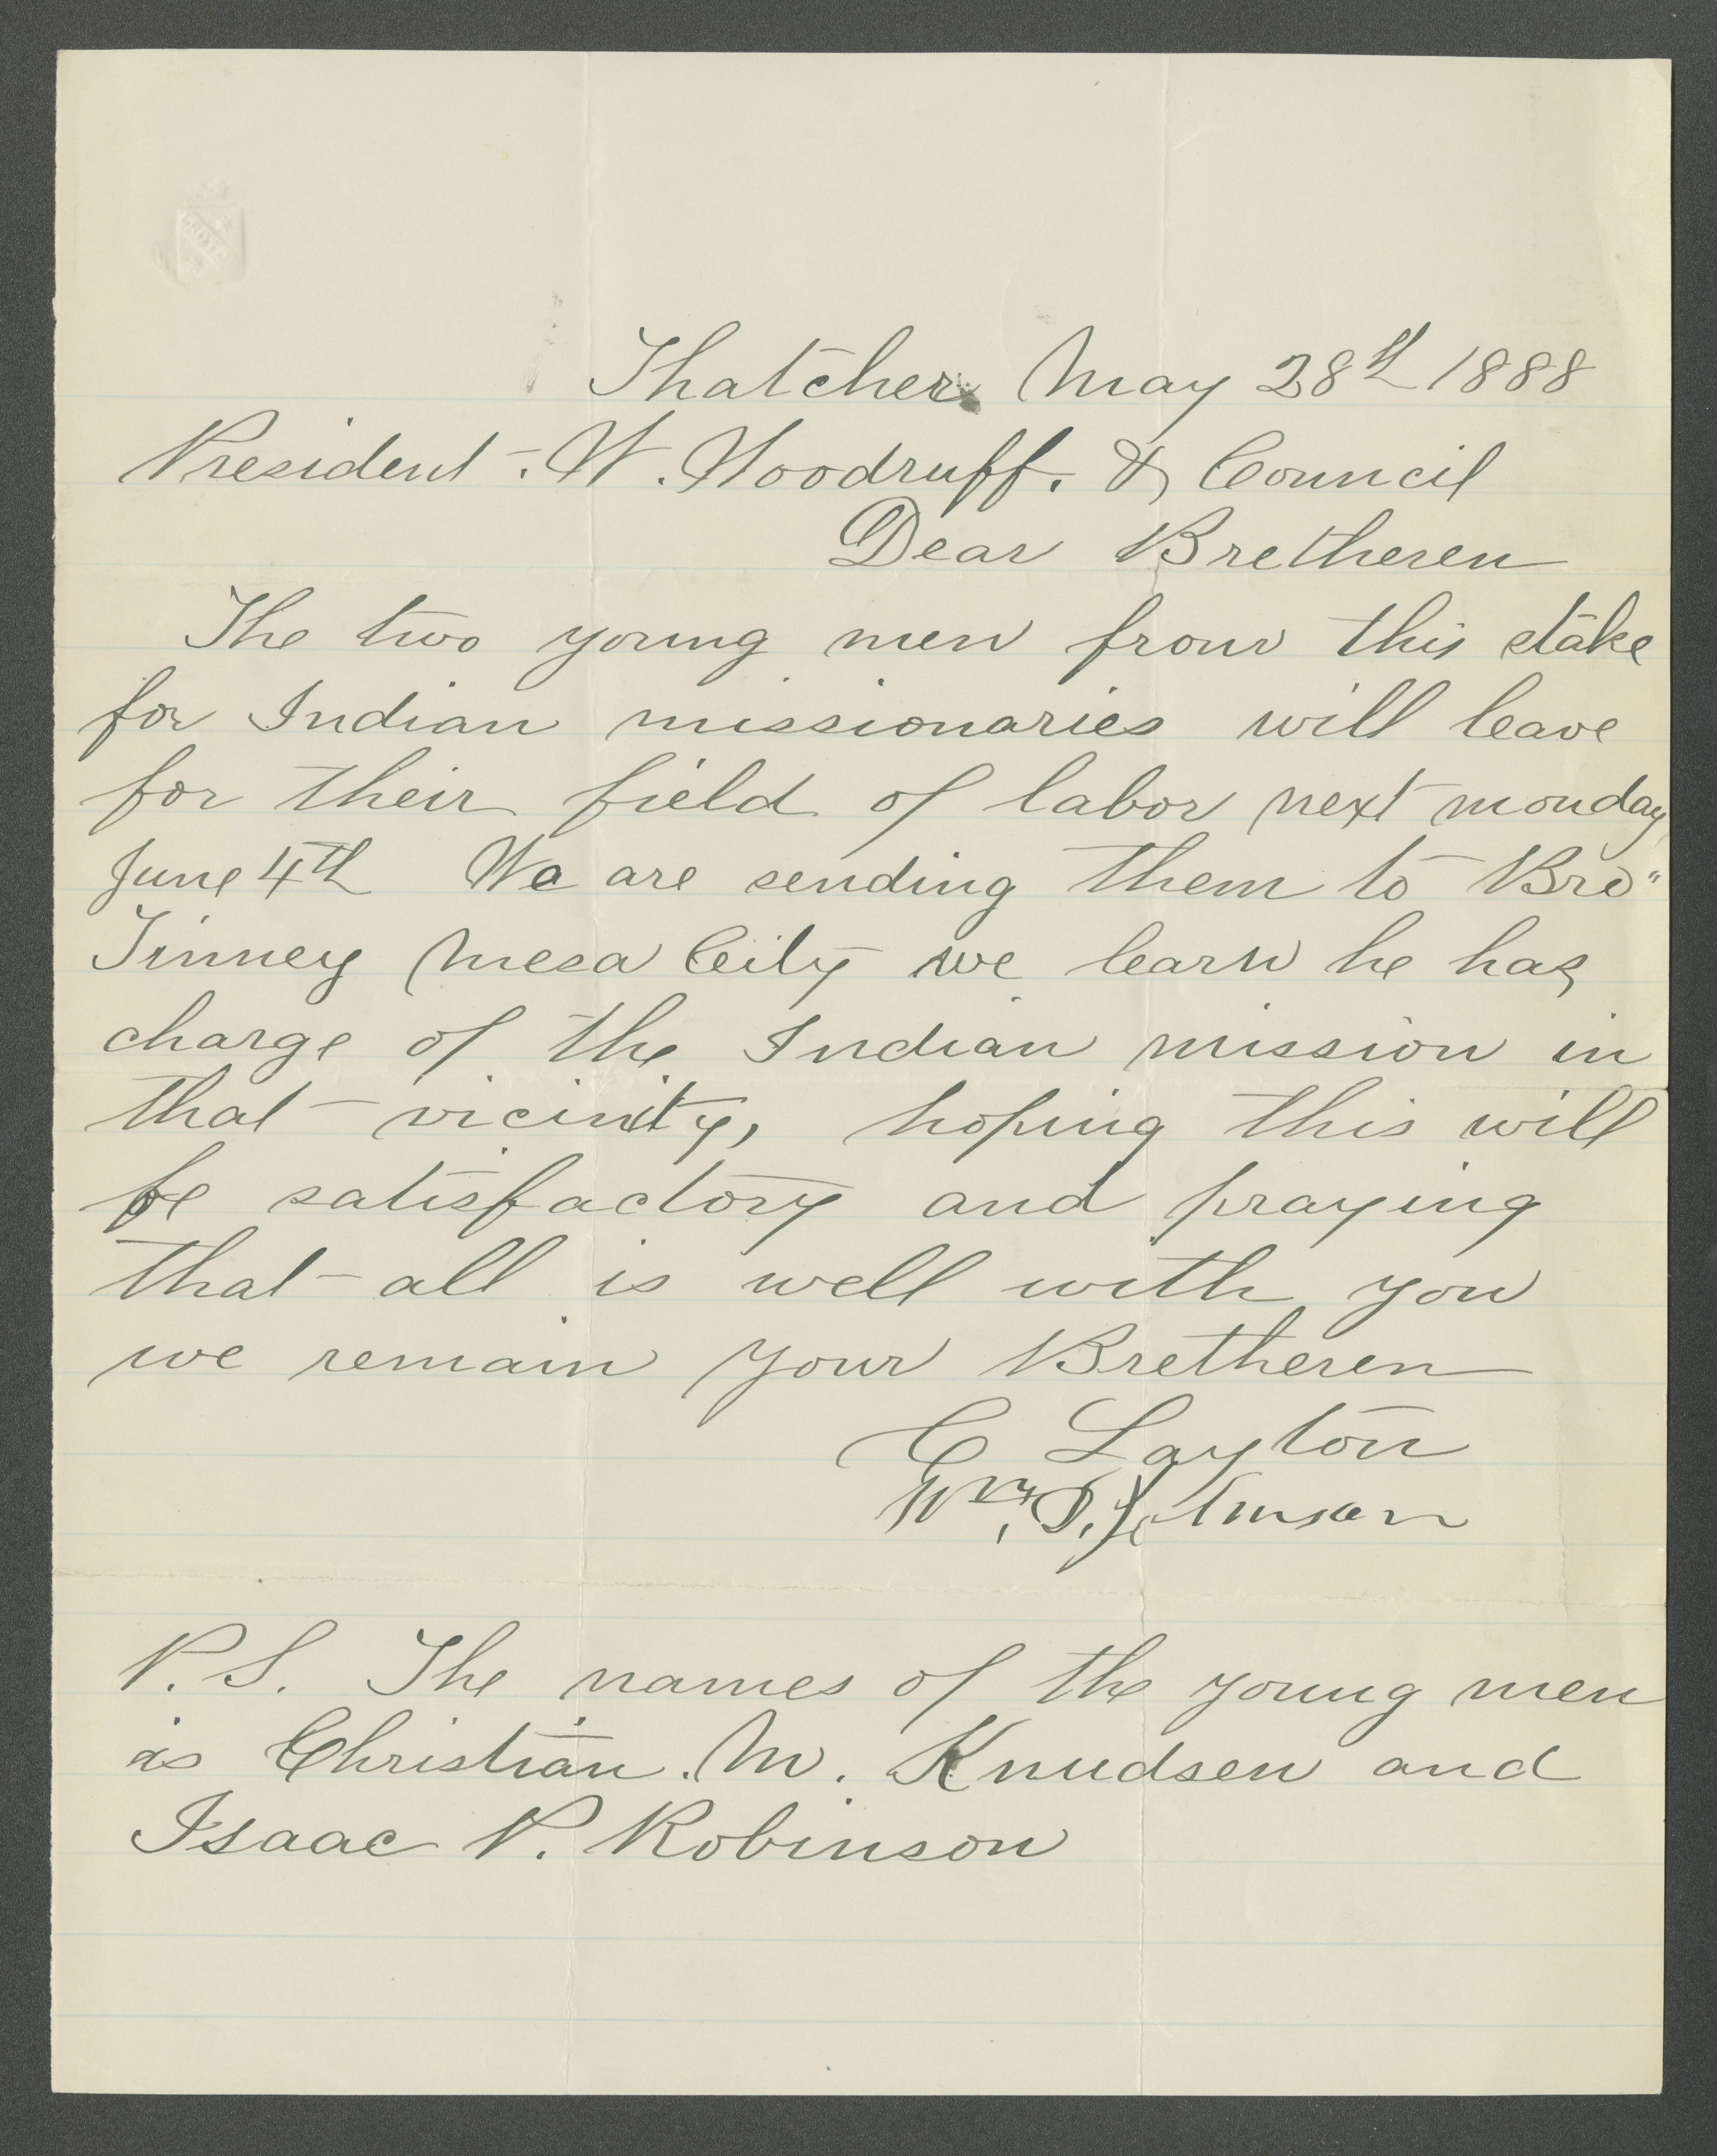 Thatcher May 28th 1888
President - W. Woodruff. & Council
Dear Bretheren
The two young men from this stake
for Indian missionaries will leave
for their field of labor next monday
June 4th We are sending them to Bro"
Tinney Mesa City we learn he has
charge of the Indian mission in
that vicinity, hoping this will
be satisfactory and praying
that all is well with you
we remain your Bretheren
C Layton
Wm. D. Johnson
P.S. The names of the young men
is Christian. M. Knudsen and
Isaac P. Robinson